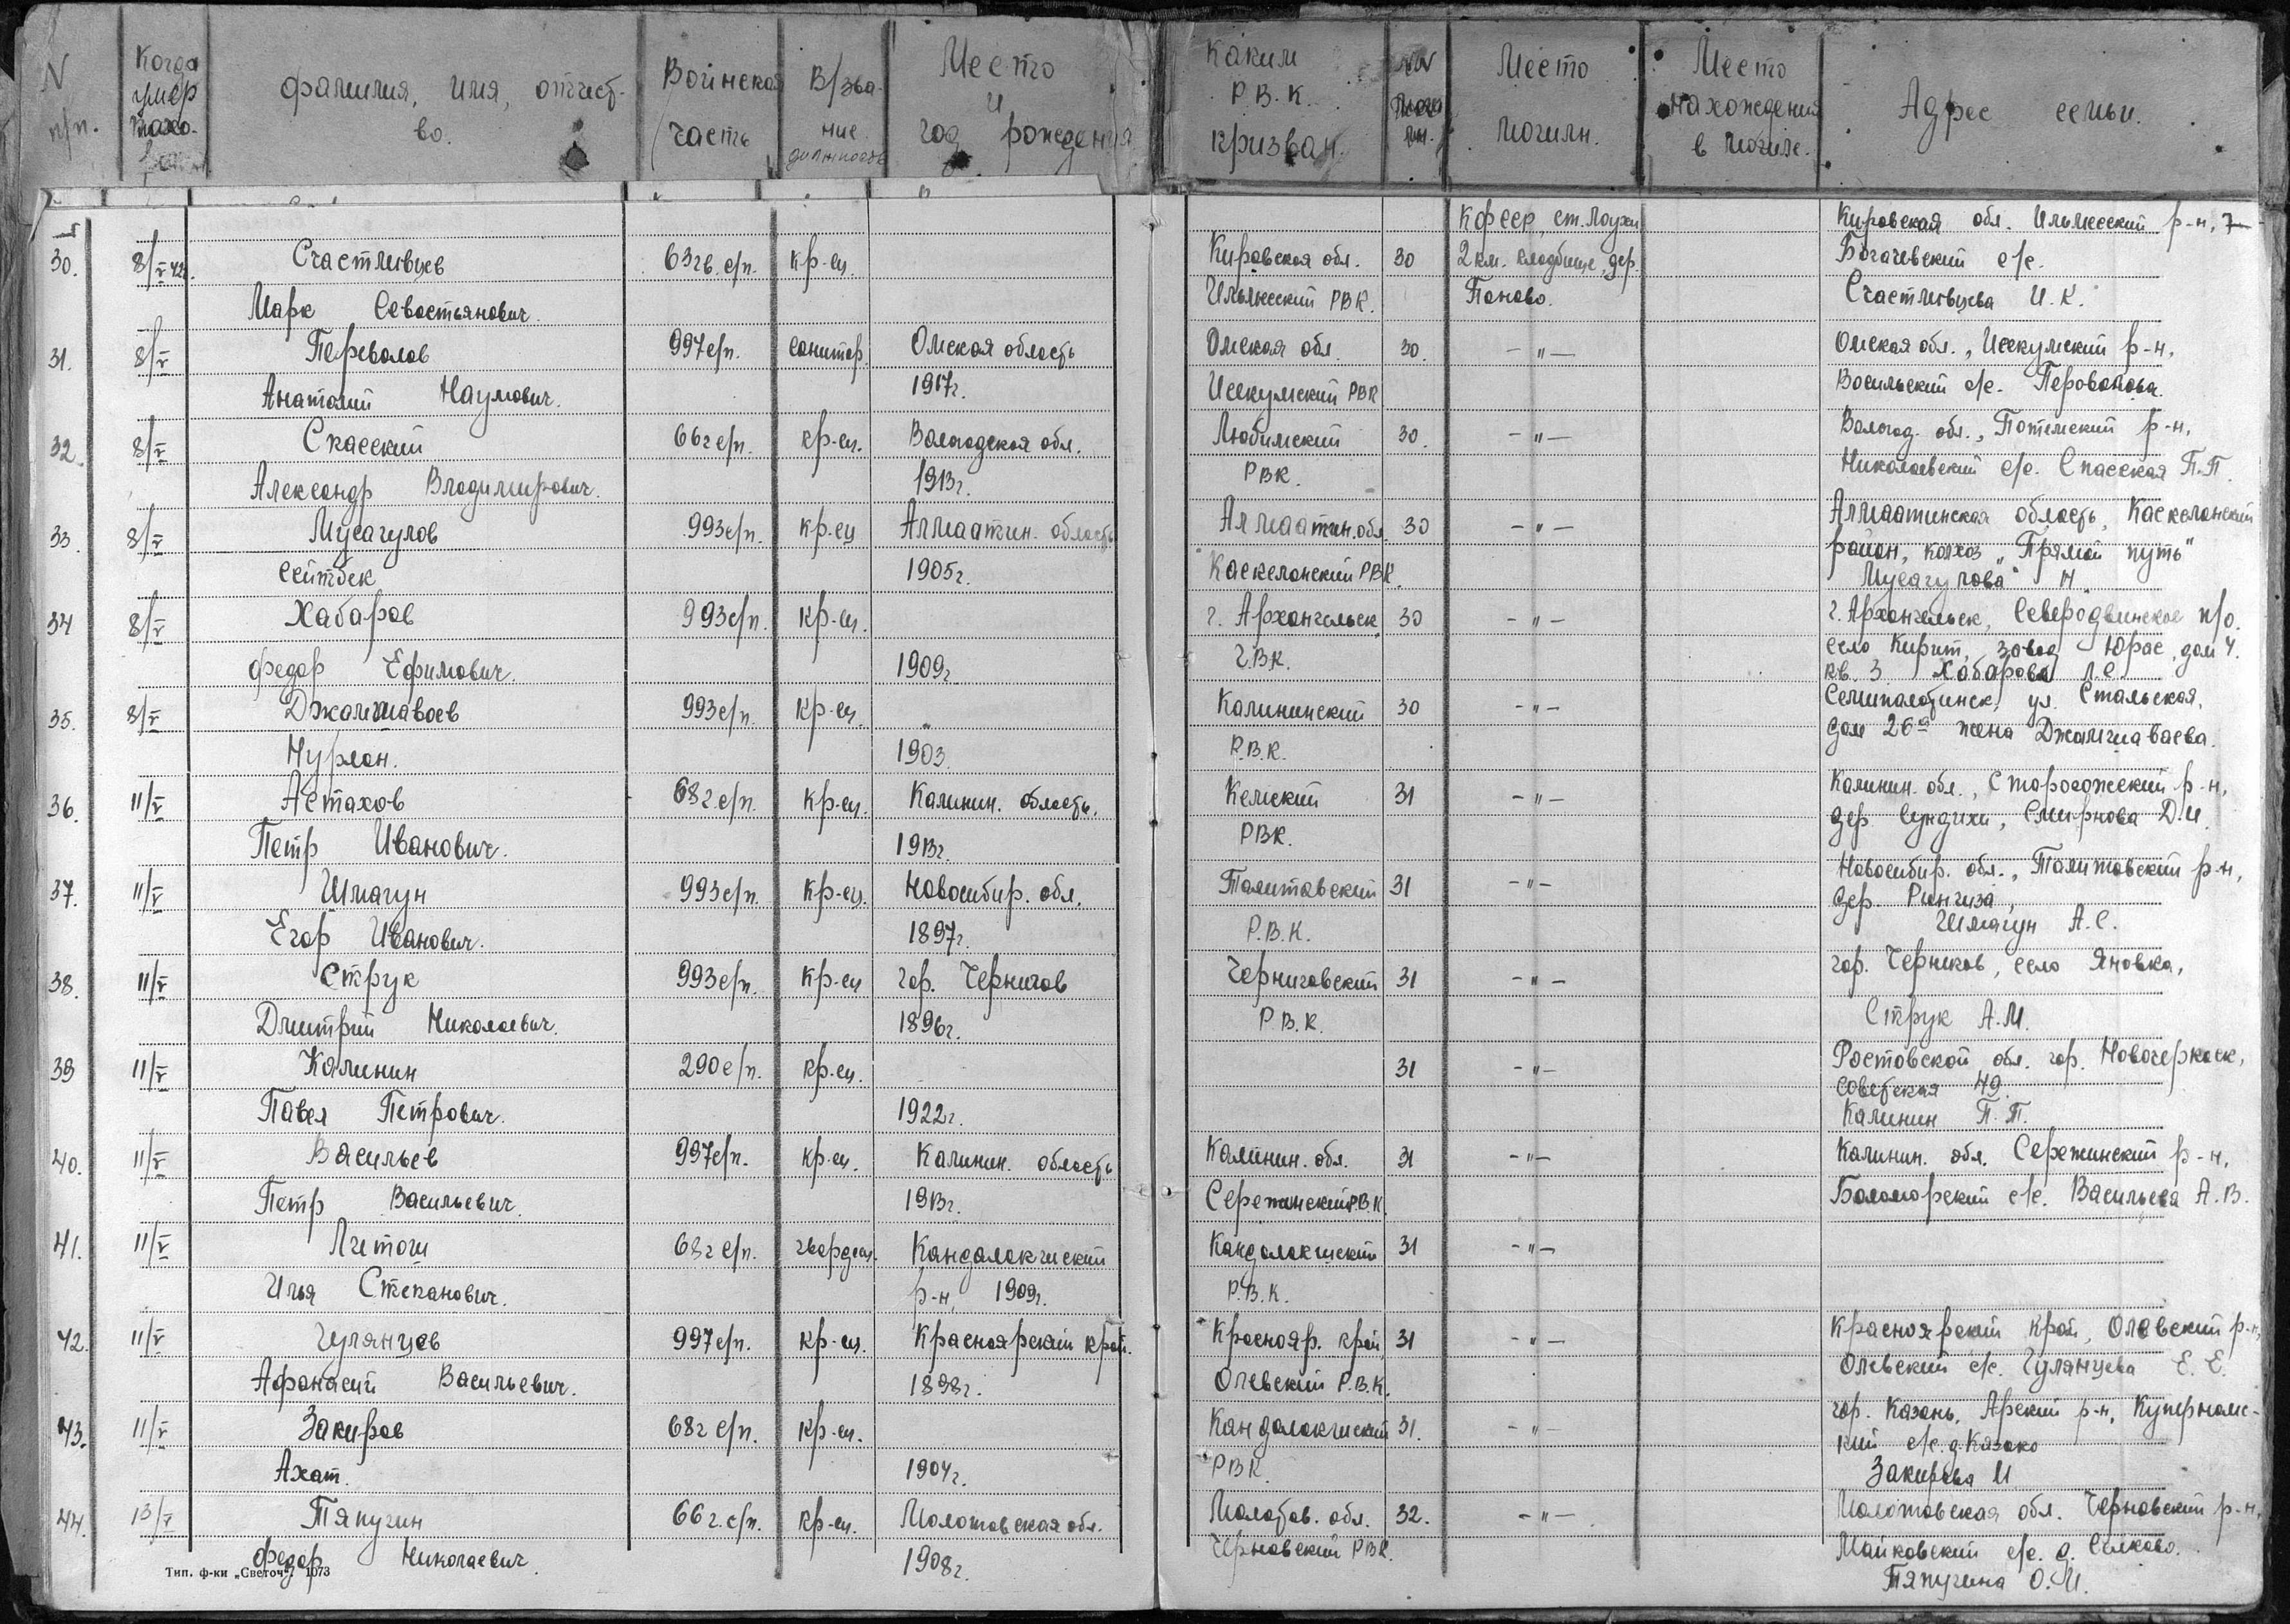 N п/п.
Когда умер
Фамилия, имя, отчество.
Воинская часть
В/звание должность
Место и год рождения
Каким Р.В.К. призван.
Место могилн.
Место нахождения в могиле.
Адрес семьи.
КФССР, ст. Лоухи Кировская обл. р-н,
30. 8/V 42г. Счастливцев 63гв. с/п. кр-ец. Кировская обл. 30 2 км. кладбище, дер. Богачевский с/с.
Марк Севостьянович. РВК. Попово. Счастливцева И.К.
31. 8/V Перевалов 997 с/п. санитар. Омская область Омская обл. 30. -"- Омская обл., р-н,
Анатолий Наумович. 1917г. РВК с/с.
32. 8/V Спасский 66г с/п. кр-ец. Вологодская обл. Любимский 30. -"- Вологод. обл., р-н,
Александр Владимирович. 1913г. РВК. Николаевский с/с. Спасская П.П.
33. 8/V Мусагулов 993 с/п. кр-ец Алмаатин. область Алмаатин. обл. 30 -"- Алмаатинская область, Каскеланский
район, колхоз „Прямой путь"
Сеитбек 1905г. Каскеланский РВК. Мусагулова Н
34 8/V Хабаров 993 с/п. кр-ец. г. Архангельск 30 -"- г. Архангельск, Северодвинское п/о.
село завод дом 4.
Федор Ефимович. 1909г. Г.В.К. кв. 3 Хабарова Л.С
35. 8/V 993 с/п. кр-ец. Калининский 30 -"- ул. Стальская,
Нурлан. 1903. Р.В.К. дом 26а жена
36. 11/V Астахов 68г. с/п. кр-ец. Калинин. область. Кемский 31 -"- Калинин. обл., р-н,
Петр Иванович. 1913г. РВК. дер. Смирнова Д.И.
37. 11/V Шмагун 993 с/п. кр-ец. Новосибир. обл. 31 -"- Новосибир. обл., р-н,
дер.
Егор Иванович. 1897г. Р.В.К. Шмагун А.С.
38. 11/V Струк 993 с/п. кр-ец гор. Чернигов Черниговский 31 -"- гор. село Яновка,
Дмитрий Николаевич. 1896г. Р.В.К. Струк А.М.
39 11/V Калинин 290 с/п. кр-ец. 31 -"- Ростовской обл. гор. Новочеркаск,
Советская 49.
Павел Петрович. 1922г. Калинин П.П.
40. 11/V Васильев 997 с/п. кр-ец. Калинин. область Калинин. обл. 31 -"- Калинин. обл. Сережинский р-н,
Петр Васильевич. 1913г. Сережинский Р.В.К. с/с. Васильева А.В.
41. 11/V 68г с/п. гвардеец. Кандалакшский Кандалакшский 31 -"-
Илья Степанович. р-н, 1909г. Р.В.К.
42. 11/V Гулянцев 997 с/п. кр-ец. Красноярский край. Краснояр. край 31 -"- Красноярский край, р-н,
Афонасий Васильевич. 1898г. Р.В.К. с/с. Гулянцева Е.Е.
43. 11/V Закиров 68г с/п. кр-ец. Кандалакшский 31. -"- гор. Казань, Арский р-н,
Ахат. 1904г. РВК. Закирова И
44. 13/V Тяпугин 66г. с/п. кр-ец. Молотовская обл. Молотов. обл. 32. -"- Молотовская обл. Черновский р-н,
Федор Николаевич. 1908г. Черновский РВК. Майковский с/с. д.
Тяпугина О.И.
Тип. ф-ки „Светоч". 1073